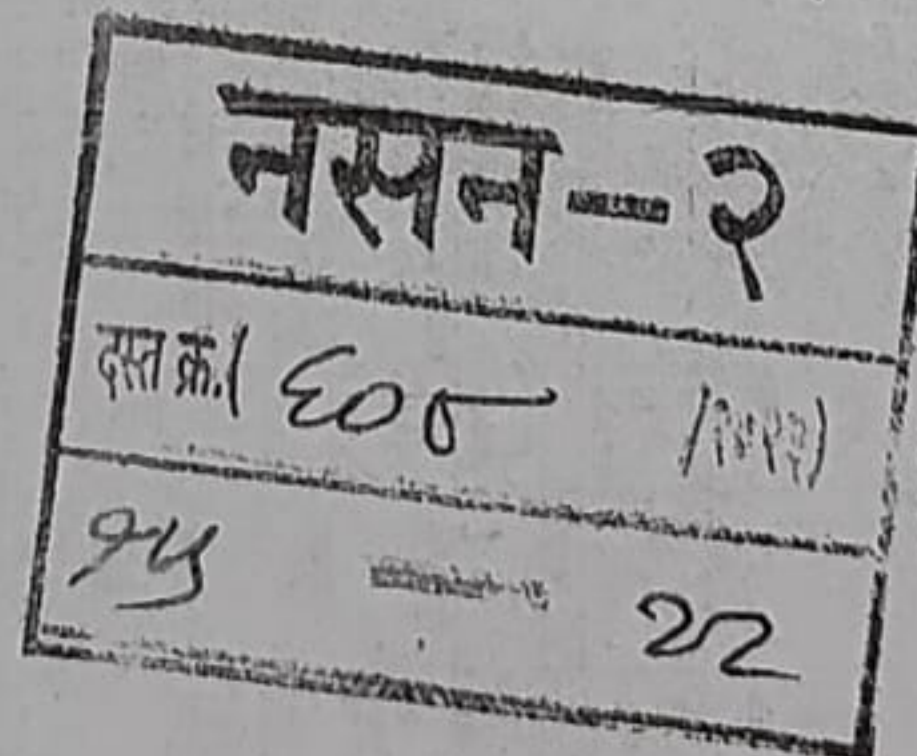 नसन-२
दस्त क्र.( ६०८
१५ २२